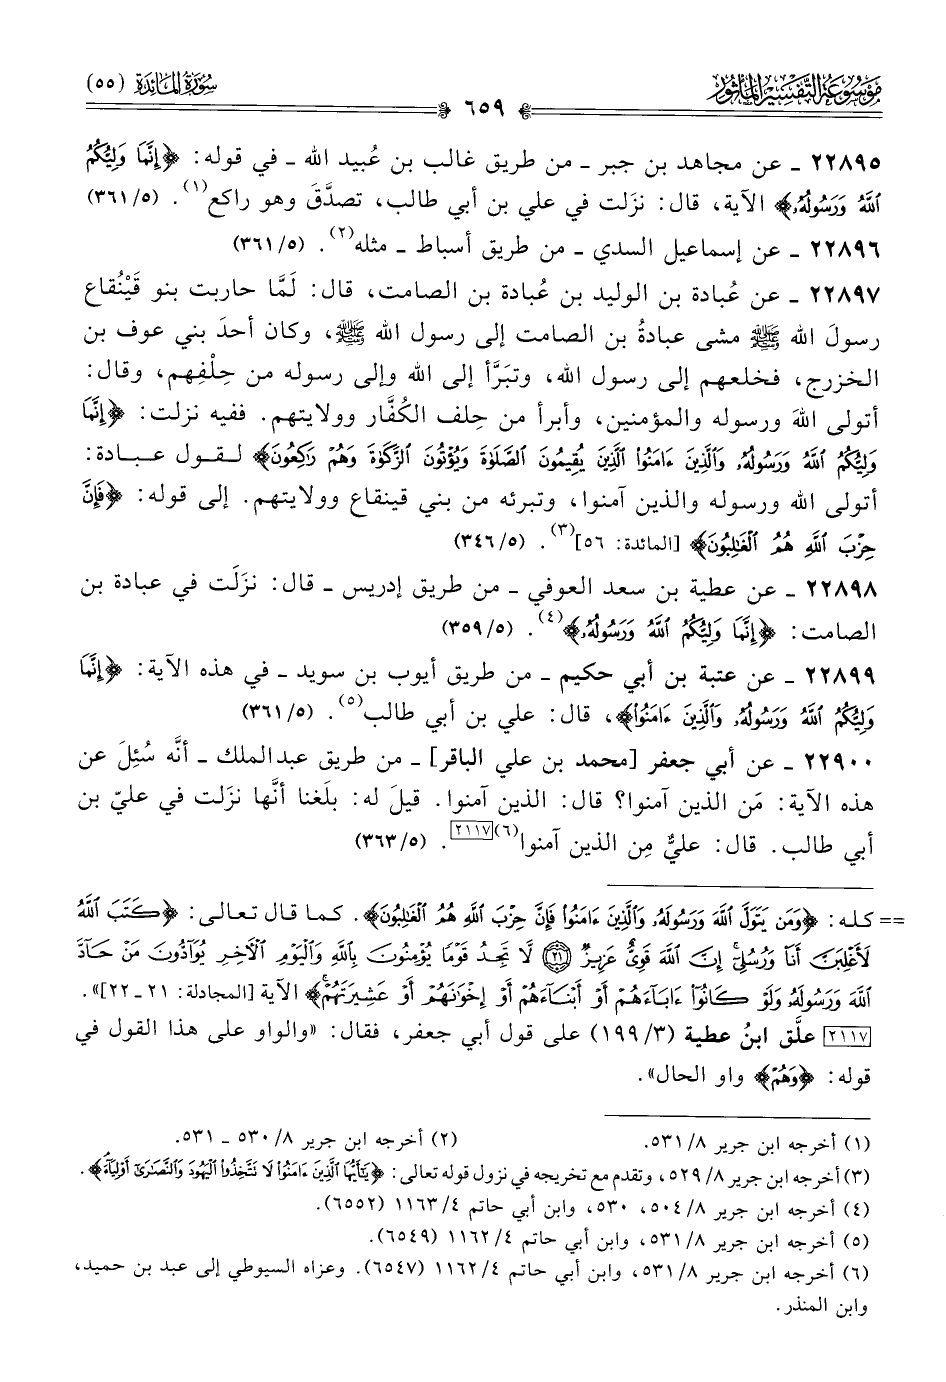 مَوْسُوعَة التَّفْسِير المَأْثُور
٦٥٩
سُورَةُ المَائِدَة (٥٥)
٢٢٨٩٥ ـ عن مجاهد بن جبر ـ من طريق غالب بن عُبيد الله ـ في قوله: ﴿إِنَّمَا وَلِيُّكُمُ
ٱللَّهُ وَرَسُولُهُۥ﴾ الآية، قال: نزَلت في علي بن أبي طالب، تصدَّقَ وهو راكع(١). (٣٦١/٥)
٢٢٨٩٦ ـ عن إسماعيل السدي ـ من طريق أسباط ـ مثله(٢). (٣٦١/٥)
٢٢٨٩٧ ـ عن عُبادة بن الوليد بن عُبادة بن الصامت، قال: لَمَّا حاربت بنو قَيْنُقاع
رسولَ الله ﷺ مشى عبادةُ بن الصامت إلى رسول الله ﷺ، وكان أحدَ بني عوف بن
الخزرج، فخلعهم إلى رسول الله، وتبَرَّأ إلى الله وإلى رسوله من حِلْفِهم، وقال:
أتولى اللهَ ورسوله والمؤمنين، وأبرأ من حِلف الكُفَّار وولايتهم. ففيه نزلت: ﴿إِنَّمَا
وَلِيُّكُمُ ٱللَّهُ وَرَسُولُهُۥ وَٱلَّذِينَ ءَامَنُوا۟ ٱلَّذِينَ يُقِيمُونَ ٱلصَّلَوٰةَ وَيُؤْتُونَ ٱلزَّكَوٰةَ وَهُمْ رَٰكِعُونَ﴾ لقول عبادة:
أتولى الله ورسوله والذين آمنوا، وتبرئه من بني قينقاع وولايتهم. إلى قوله: ﴿فَإِنَّ
حِزْبَ ٱللَّهِ هُمُ ٱلْغَٰلِبُونَ﴾ [المائدة: ٥٦](٣). (٣٤٦/٥)
٢٢٨٩٨ ـ عن عطية بن سعد العوفي ـ من طريق إدريس ـ قال: نزَلَت في عبادة بن
الصامت: ﴿إِنَّمَا وَلِيُّكُمُ ٱللَّهُ وَرَسُولُهُۥ﴾(٤). (٣٥٩/٥)
٢٢٨٩٩ ـ عن عتبة بن أبي حكيم ـ من طريق أيوب بن سويد ـ في هذه الآية: ﴿إِنَّمَا
وَلِيُّكُمُ ٱللَّهُ وَرَسُولُهُۥ وَٱلَّذِينَ ءَامَنُوا۟﴾، قال: علي بن أبي طالب(٥). (٣٦١/٥)
٢٢٩٠٠ ـ عن أبي جعفر [محمد بن علي الباقر] ـ من طريق عبدالملك ـ أنَّه سُئِلَ عن
هذه الآية: مَن الذين آمنوا؟ قال: الذين آمنوا. قيلَ له: بلَغنا أنَّها نزَلت في عليّ بن
أبي طالب. قال: عليٌّ مِن الذين آمنوا(٦)[٢١١٧]. (٣٦٣/٥)
== كله: ﴿وَمَن يَتَوَلَّ ٱللَّهَ وَرَسُولَهُۥ وَٱلَّذِينَ ءَامَنُوا۟ فَإِنَّ حِزْبَ ٱللَّهِ هُمُ ٱلْغَٰلِبُونَ﴾. كما قال تعالى: ﴿كَتَبَ ٱللَّهُ
لَأَغْلِبَنَّ أَنَا۠ وَرُسُلِىٓ إِنَّ ٱللَّهَ قَوِىٌّ عَزِيزٌ ۝٢١ لَّا تَجِدُ قَوْمًا يُؤْمِنُونَ بِٱللَّهِ وَٱلْيَوْمِ ٱلْـَٔاخِرِ يُوَآدُّونَ مَنْ حَآدَّ
ٱللَّهَ وَرَسُولَهُۥ وَلَوْ كَانُوٓا۟ ءَابَآءَهُمْ أَوْ أَبْنَآءَهُمْ أَوْ إِخْوَٰنَهُمْ أَوْ عَشِيرَتَهُمْ﴾ الآية [المجادلة: ٢١ ـ ٢٢]».
[٢١١٧] علَّق ابنُ عطية (١٩٩/٣) على قول أبي جعفر، فقال: «والواو على هذا القول في
قوله: ﴿وَهُمْ﴾ واو الحال».
(١) أخرجه ابن جرير ٥٣١/٨. (٢) أخرجه ابن جرير ٥٣٠/٨ ـ ٥٣١.
(٣) أخرجه ابن جرير ٥٢٩/٨، وتقدم مع تخريجه في نزول قوله تعالى: ﴿يَٰٓأَيُّهَا ٱلَّذِينَ ءَامَنُوا۟ لَا تَتَّخِذُوا۟ ٱلْيَهُودَ وَٱلنَّصَٰرَىٰٓ أَوْلِيَآءَ﴾.
(٤) أخرجه ابن جرير ٥٠٤/٨، ٥٣٠، وابن أبي حاتم ١١٦٣/٤ (٦٥٥٢).
(٥) أخرجه ابن جرير ٥٣١/٨، وابن أبي حاتم ١١٦٢/٤ (٦٥٤٩).
(٦) أخرجه ابن جرير ٥٣١/٨، وابن أبي حاتم ١١٦٢/٤ (٦٥٤٧). وعزاه السيوطي إلى عبد بن حميد،
وابن المنذر.